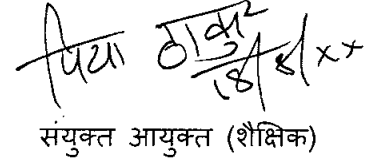 पिया ठाकुर
18/8/××
संयुक्त आयुक्त (शैक्षिक)